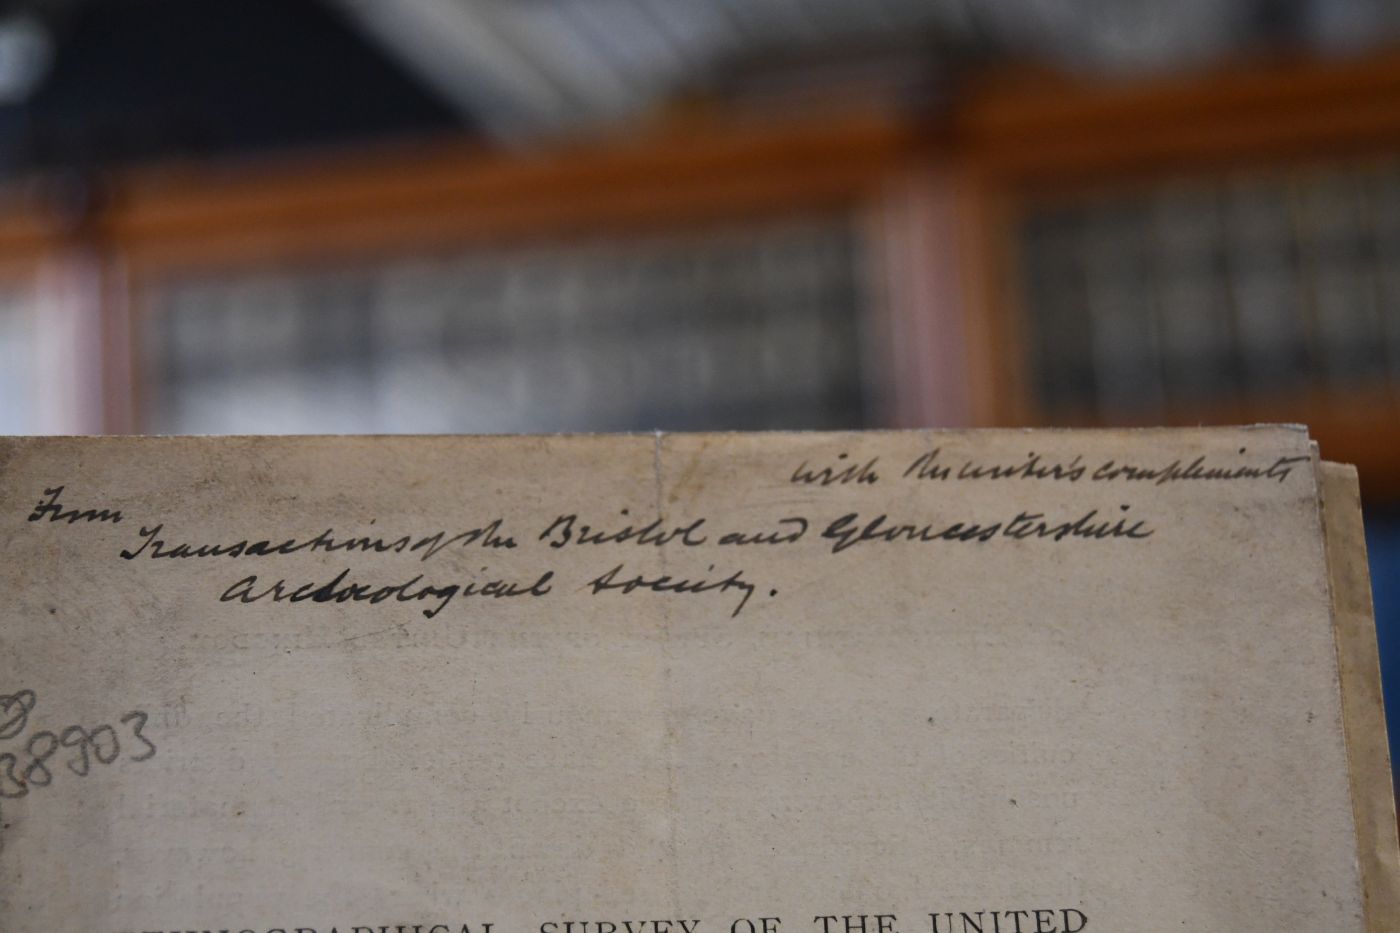 with the writer's compliments
From
Transactions of the Bristol and Gloucestershire
Archæological Society.
38903
ETHNOGRAPHICAL SURVEY OF THE UNITED